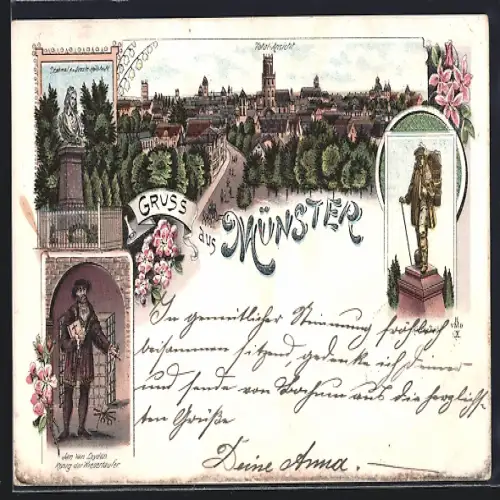 Denkmal
Total-Ansicht
GRUSS
aus
MÜNSTER
Jan van Leyden
König der Wiedertäufer
In gemütlicher Stimmung fröhlich
beisammen sitzend, gedenke ich Deiner
und sende von Bochum aus die herzlich-
sten Grüße
Deine Anna.